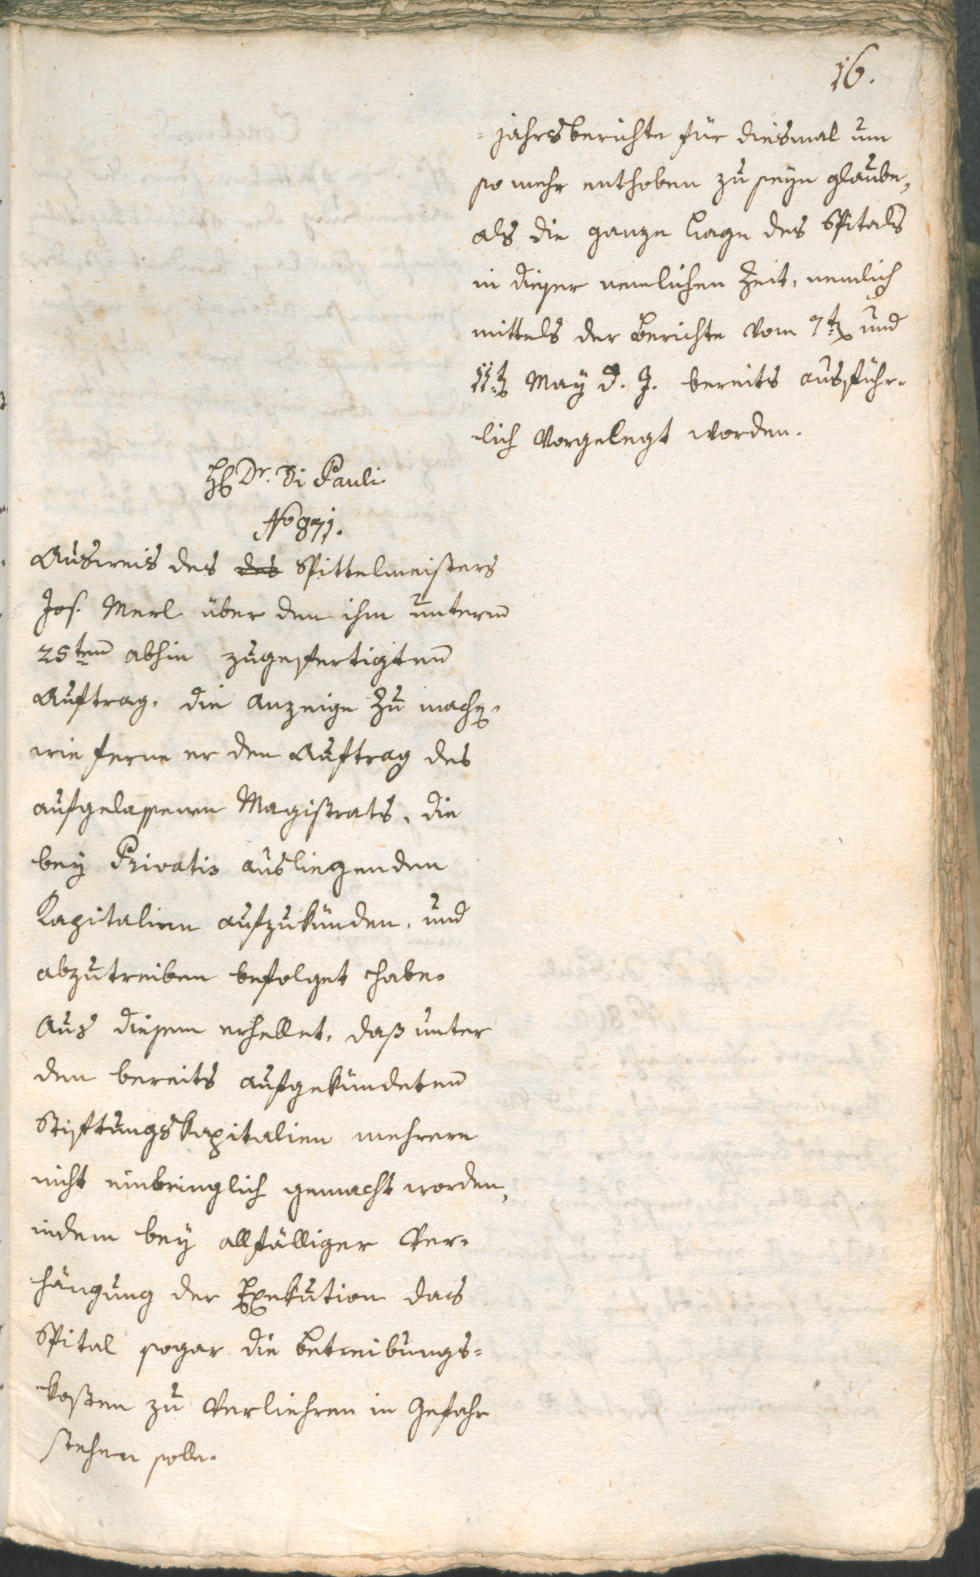 16.
-jahrsberichte für diesmal um
so mehr enthoben zu seyn glaube,
als die ganze Lage des Spitals
in dieser nemlichen Zeit, nemlich
mittels der Berichte vom 7t. und
11t. May d. J. bereits ausführ-
lich vorgelegt worden.
H. Dr. Di Pauli
No 871.
Ausweis des des Spittelmeisters
Jos. Merl über den ihm unterm
25ten abhin zugefertigten
Auftrag, die Anzeige zu machen,
wie ferne er den Auftrag des
aufgelassenen Magistrats, die
bey Privatis ausliegenden
Kapitalien aufzukünden, und
abzutreiben befolget habe.
Aus diesem erhellet, daß unter
den bereits aufgekündeten
Stiftungskapitalien mehrere
nicht einbringlich gemacht worden,
indem bey allfälliger Ver-
hängung der Exekution das
Spital sogar die Betreibungs-
kosten zu verliehren in Gefahr
stehen solle.